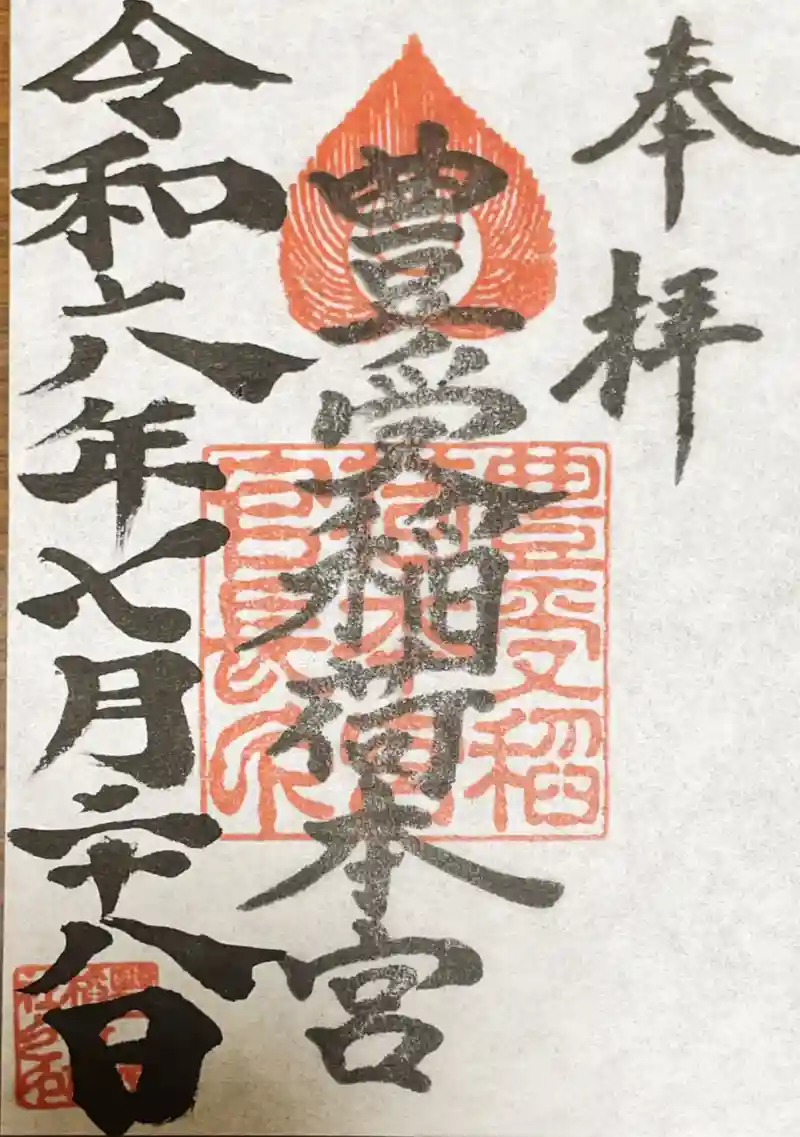 奉拝
豊受稲荷本宮
豊受稲
荷本宮
宮長印
令和六年七月二十八日